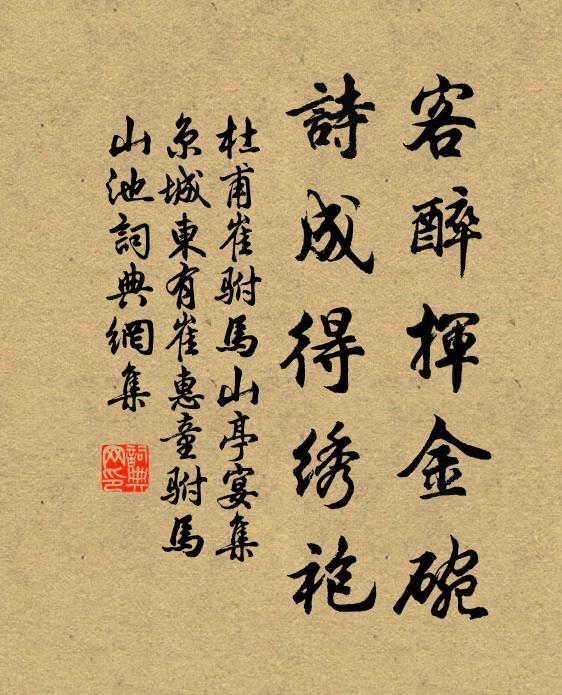 客醉揮金碗
詩成得绣袍
杜甫崔駙馬山亭宴集
京城東有崔惠童駙馬
山池詞典網集
詞典
网印